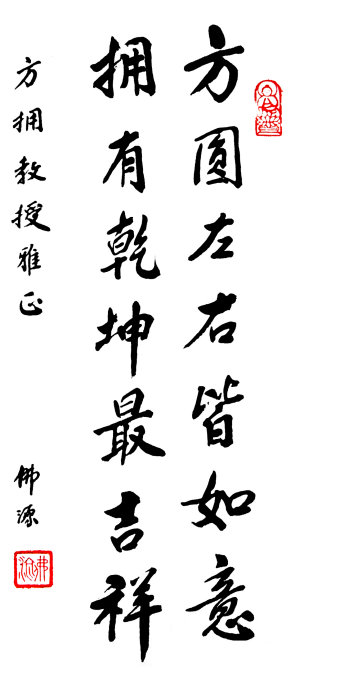 方圆左右皆如意
拥有乾坤最吉祥
方拥教授雅正
佛源